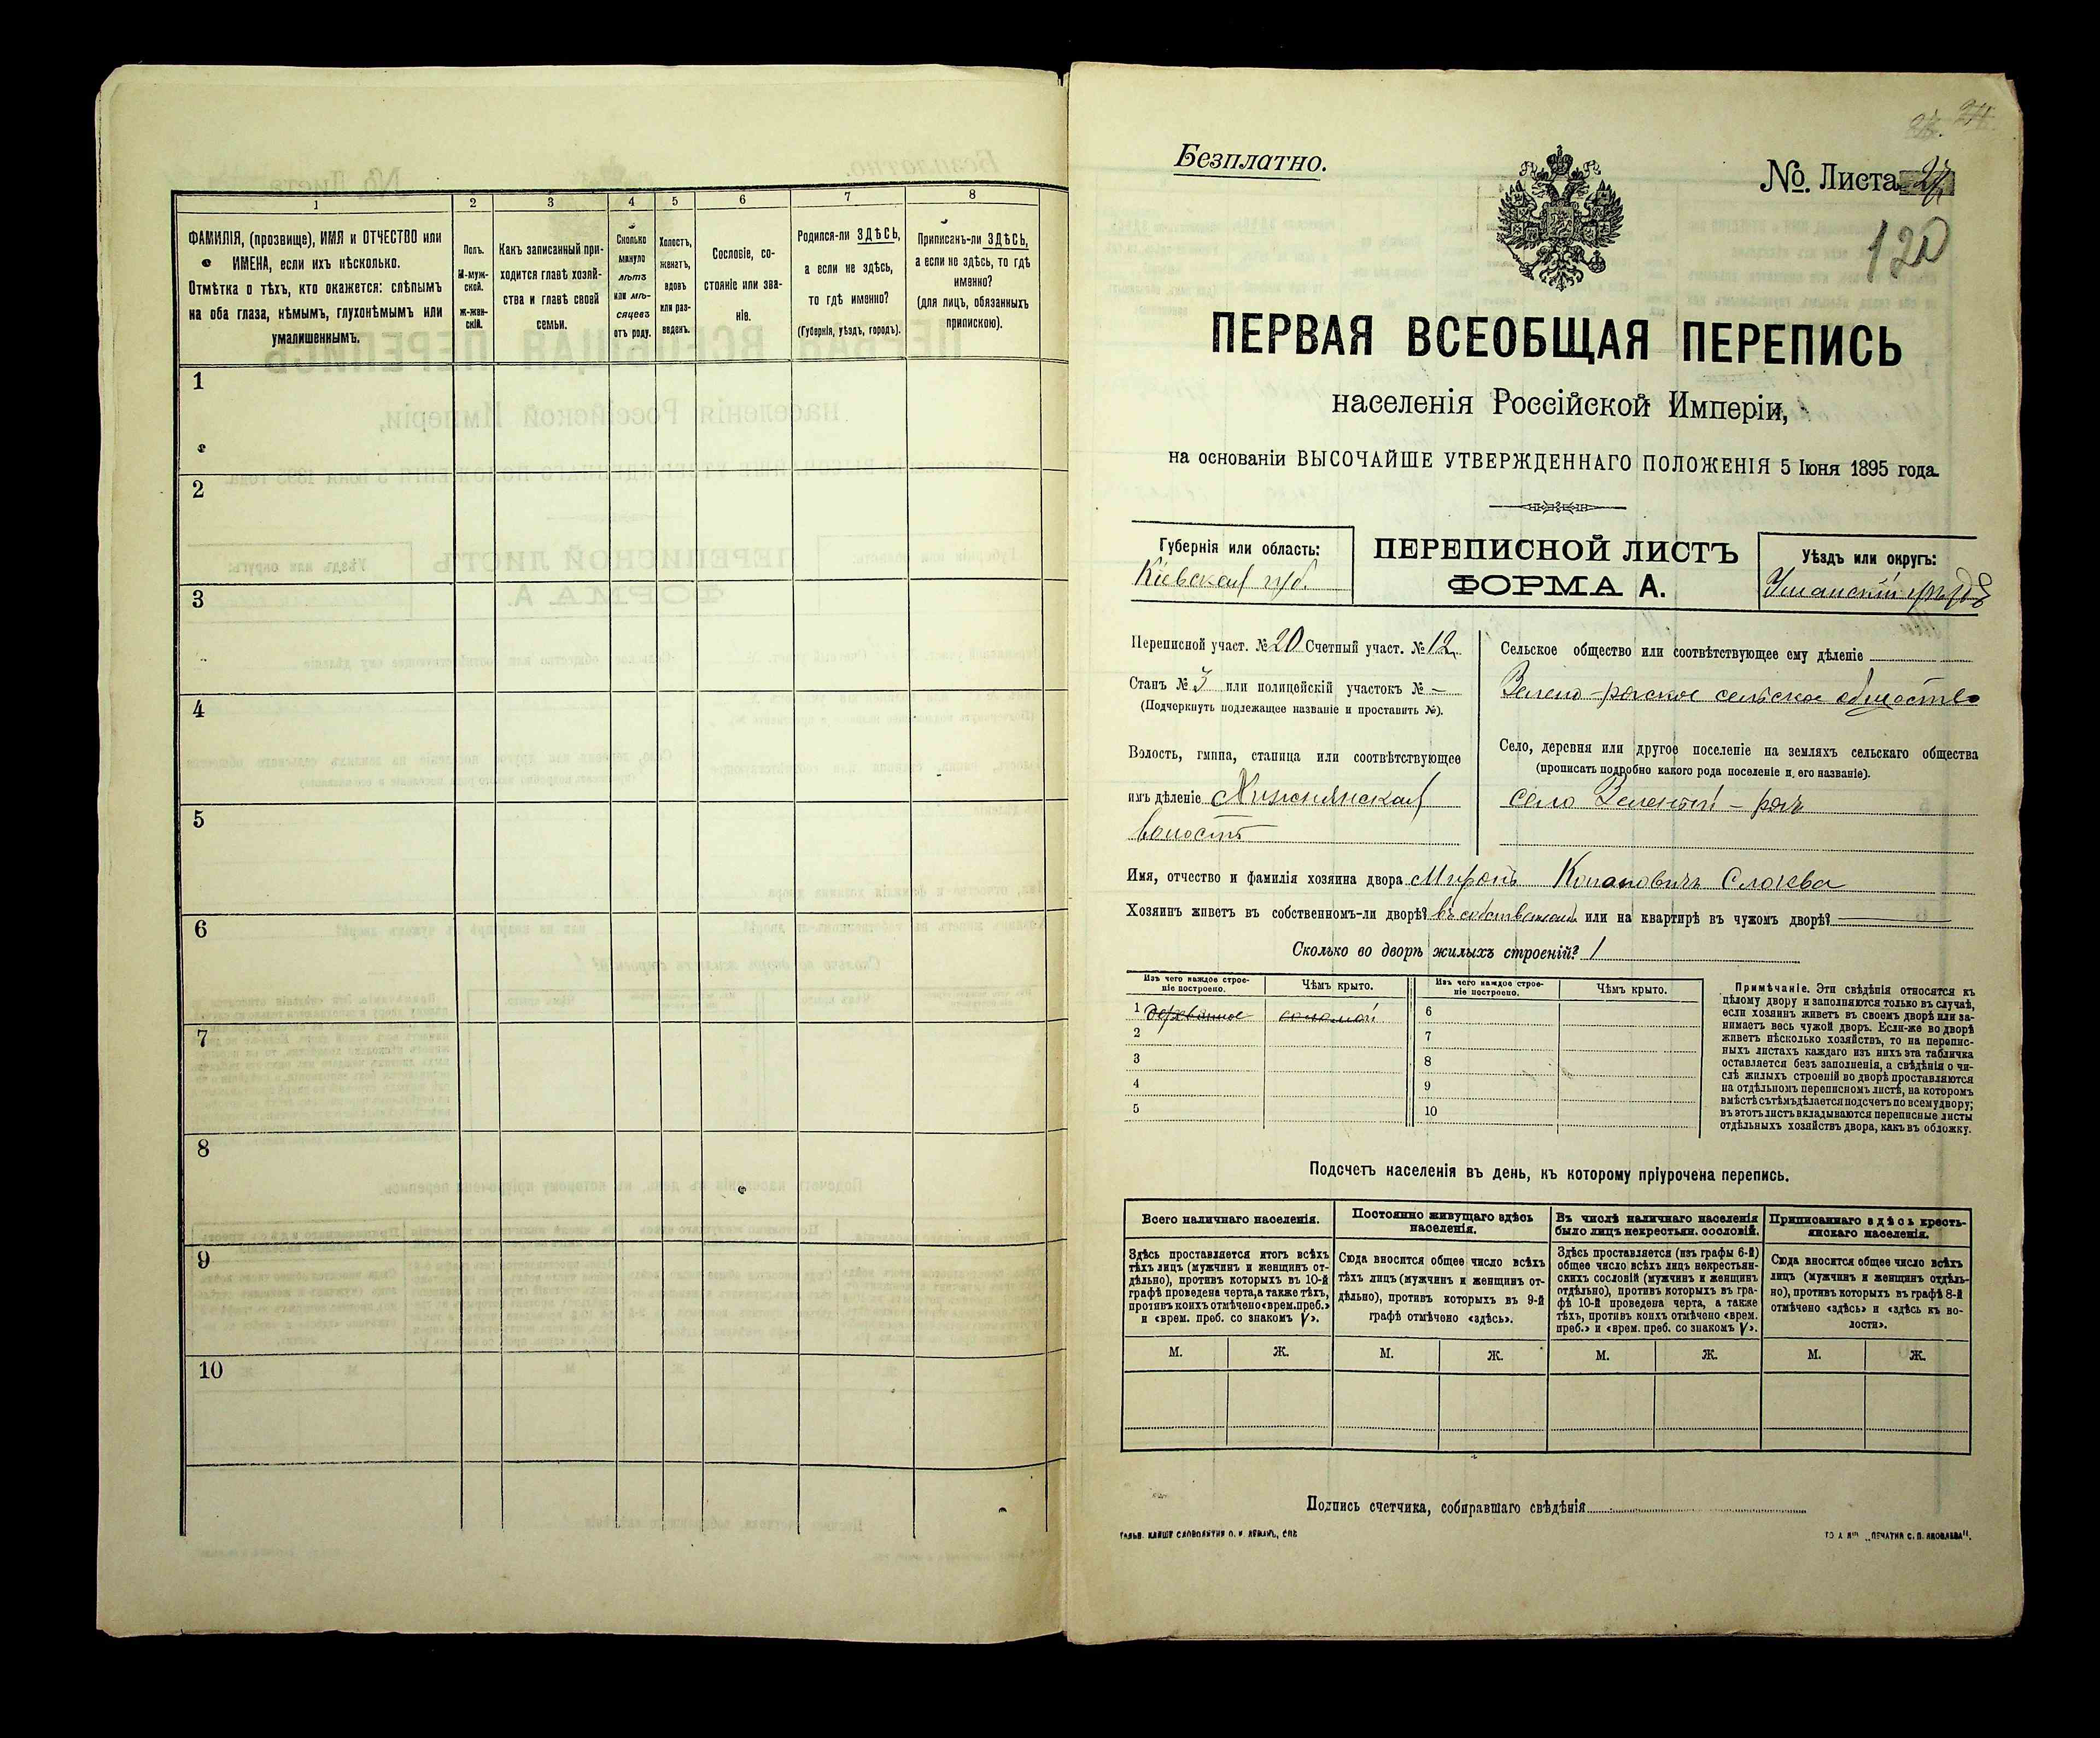 1
2
3
4
5
6
7
8
ФАМИЛІЯ, (прозвище), ИМЯ и ОТЧЕСТВО или
ИМЕНА, если ихъ нѣсколько.
Отмѣтка о тѣхъ, кто окажется: слѣпымъ
на оба глаза, нѣмымъ, глухонѣмымъ или
умалишеннымъ.
Полъ.
М-муж-
ской.
Ж-жен-
скій.
Какъ записанный при-
ходится главѣ хозяй-
ства и главѣ своей
семьи.
Сколько
минуло
лѣтъ
или мѣ-
сяцевъ
отъ роду.
Холостъ,
женатъ,
вдовъ
или раз-
веденъ.
Сословіе, со-
стояніе или зва-
ніе.
Родился-ли ЗДѢСЬ,
а если не здѣсь,
то гдѣ именно?
(Губернія, уѣздъ, городъ).
Приписанъ-ли ЗДѢСЬ,
а если не здѣсь, то гдѣ
именно?
(для лицъ, обязанныхъ
припискою).
1
2
3
4
5
6
7
8
9
10
Безплатно.
№. Листа
120
ПЕРВАЯ ВСЕОБЩАЯ ПЕРЕПИСЬ
населенія Россійской Имперіи,
на основаніи ВЫСОЧАЙШЕ УТВЕРЖДЕННАГО ПОЛОЖЕНІЯ 5 Іюня 1895 года.
Губернія или область:
Кіевская губ.
ПЕРЕПИСНОЙ ЛИСТЪ
ФОРМА А.
Уѣздъ или округъ:
Уманскій уѣздъ
Переписной участ. № 20 Счетный участ. № 12
Станъ № 3 или полицейскій участокъ № —
(Подчеркнуть подлежащее названіе и проставить №).
Волость, гмина, станица или соотвѣтствующее
имъ дѣленіе
волость
Сельское общество или соотвѣтствующее ему дѣленіе
Зелено-рогское сельское общество
Село, деревня или другое поселеніе на земляхъ сельскаго общества
(прописать подробно какого рода поселеніе и его названіе).
село Зеленый-рогъ
Имя, отчество и фамилія хозяина двора Миронъ
Хозяинъ живетъ въ собственномъ-ли дворѣ? въ собственномъ или на квартирѣ въ чужомъ дворѣ? —
Сколько во дворѣ жилыхъ строеній? 1
Изъ чего каждое строе-
ніе построено.
Чѣмъ крыто.
Изъ чего каждое строе-
ніе построено.
Чѣмъ крыто.
1 деревянное соломой
2
3
4
5
6
7
8
9
10
Примѣчаніе. Эти свѣдѣнія относятся къ
цѣлому двору и заполняются только въ случаѣ,
если хозяинъ живетъ въ своемъ дворѣ или за-
нимаетъ весь чужой дворъ. Если-же во дворѣ
живетъ нѣсколько хозяйствъ, то на перепис-
ныхъ листахъ каждаго изъ нихъ эта табличка
оставляется безъ заполненія, а свѣдѣнія о чи-
слѣ жилыхъ строеній во дворѣ проставляются
на отдѣльномъ переписномъ листѣ, на которомъ
вмѣстѣ съ тѣмъ дѣлается подсчетъ по всему двору;
въ этотъ листъ вкладываются переписные листы
отдѣльныхъ хозяйствъ двора, какъ въ обложку.
Подсчетъ населенія въ день, къ которому пріурочена перепись.
Всего наличнаго населенія.
Здѣсь проставляется итогъ всѣхъ
тѣхъ лицъ (мужчинъ и женщинъ от-
дѣльно), противъ которыхъ въ 10-й
графѣ проведена черта, а также тѣхъ,
противъ коихъ отмѣчено «врем. преб.»
и «врем. преб. со знакомъ V».
Постоянно живущаго здѣсь
населенія.
Сюда вносится общее число всѣхъ
тѣхъ лицъ (мужчинъ и женщинъ от-
дѣльно), противъ которыхъ въ 9-й
графѣ отмѣчено «здѣсь».
Въ числѣ наличнаго населенія
было лицъ некрестьян. сословій.
Здѣсь проставляется (изъ графы 6-й)
общее число всѣхъ лицъ некрестьян-
скихъ сословій (мужчинъ и женщинъ
отдѣльно), противъ которыхъ въ гра-
фѣ 10-й проведена черта, а также
тѣхъ, противъ коихъ отмѣчено «врем.
преб.» и «врем. преб. со знакомъ V».
Приписаннаго здѣсь кресть-
янскаго населенія.
Сюда вносится общее число всѣхъ
лицъ (мужчинъ и женщинъ отдѣль-
но), противъ которыхъ въ графѣ 8-й
отмѣчено «здѣсь» и «здѣсь къ во-
лости».
М. Ж. М. Ж. М. Ж. М. Ж.
Подпись счетчика, собиравшаго свѣдѣнія
„ПЕЧАТНЯ С. П. ЯКОВЛЕВА".